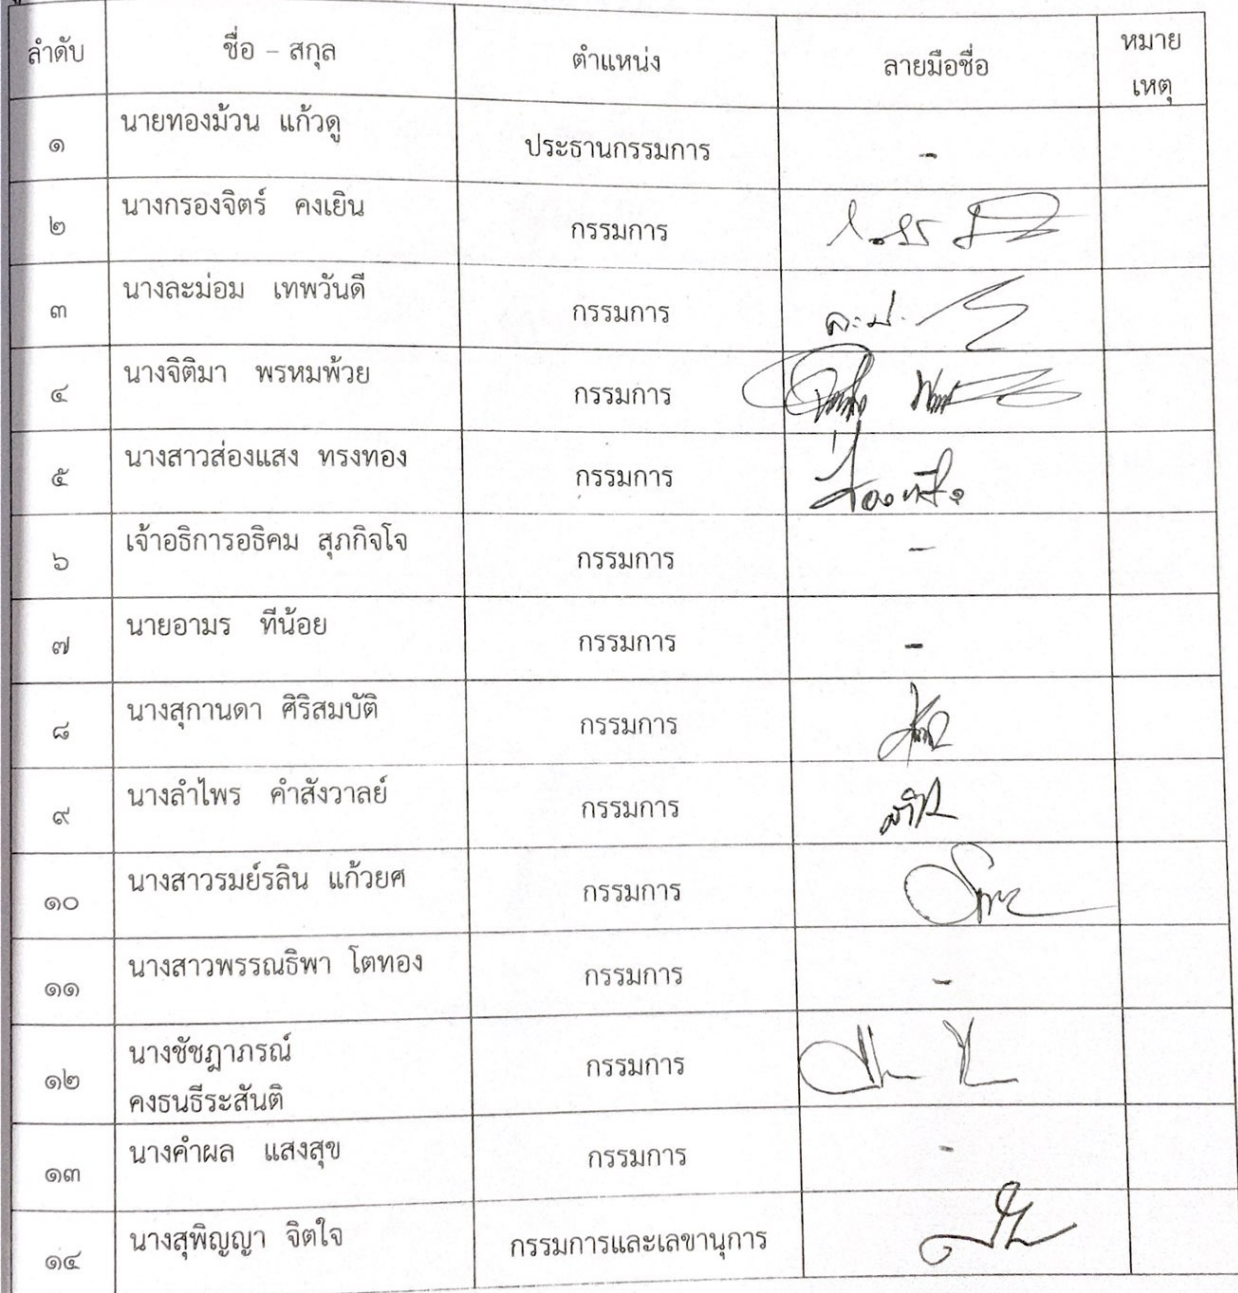 ลำดับ ชื่อ – สกุล ตำแหน่ง ลายมือชื่อ หมาย
เหตุ
๑ นายทองม้วน แก้วดู ประธานกรรมการ -
๒ นางกรองจิตร์ คงเยิน กรรมการ
๓ นางละม่อม เทพวันดี กรรมการ
๔ นางจิติมา พรหมพ้วย กรรมการ
๕ นางสาวส่องแสง ทรงทอง กรรมการ
๖ เจ้าอธิการอธิคม สุภกิจโจ กรรมการ -
๗ นายอามร ทีน้อย กรรมการ -
๘ นางสุกานดา ศิริสมบัติ กรรมการ
๙ นางลำไพร คำสังวาลย์ กรรมการ
๑๐ นางสาวรมย์รลิน แก้วยศ กรรมการ
๑๑ นางสาวพรรณธิพา โตทอง กรรมการ -
๑๒ นางชัชฎาภรณ์ กรรมการ
คงธนธีระสันติ
๑๓ นางคำผล แสงสุข กรรมการ -
๑๔ นางสุพิญญา จิตใจ กรรมการและเลขานุการ